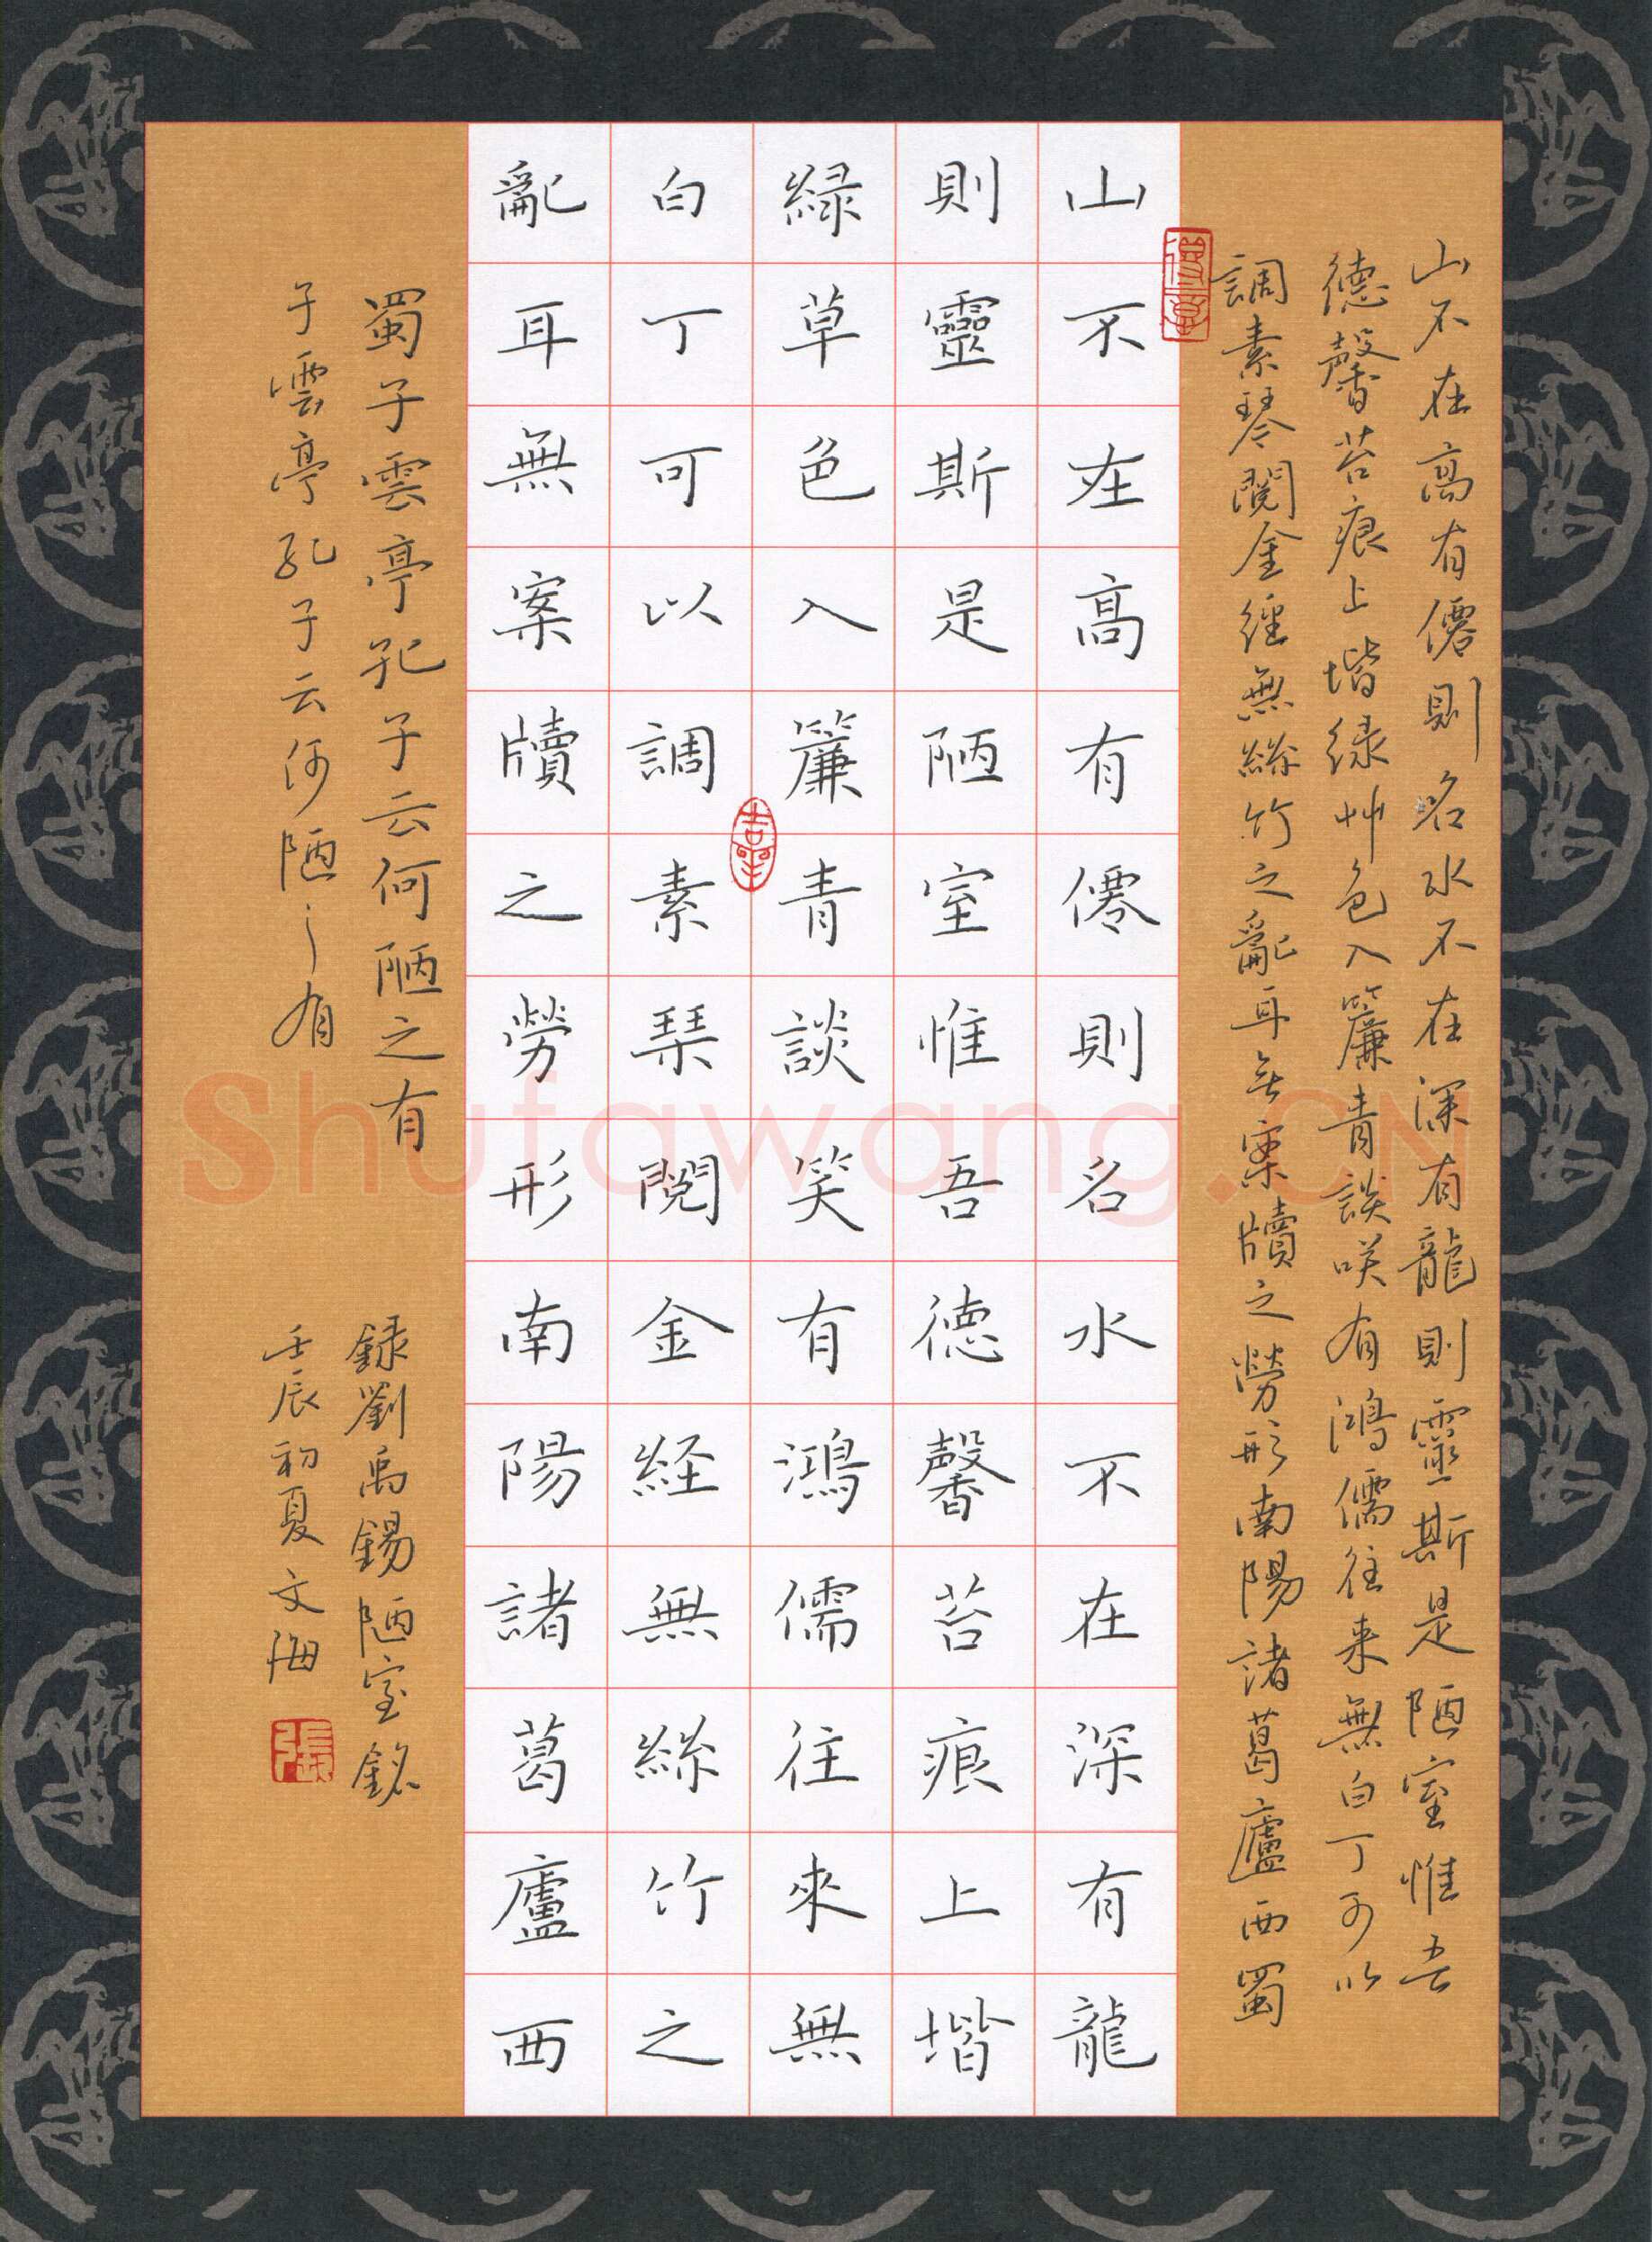 山不在高有僊則名水不在深有龍則靈斯是陋室惟吾
德馨苔痕上堦緑艸色入簾青談咲有鴻儒往来無白丁可以
調素琴閱金經無絲竹之亂耳無案牘之勞形南陽諸葛廬西蜀
山不在高有僊則名水不在深有龍
則靈斯是陋室惟吾德馨苔痕上堦
緑草色入簾青談笑有鴻儒往來無
白丁可以調素琴閱金経無絲竹之
亂耳無案牘之勞形南陽諸葛廬西
蜀子雲亭孔子云何陋之有
子雲亭孔子云何陋之有
録劉禹錫陋室銘
壬辰初夏文海
張
得意
吉羊
Shufawang.CN